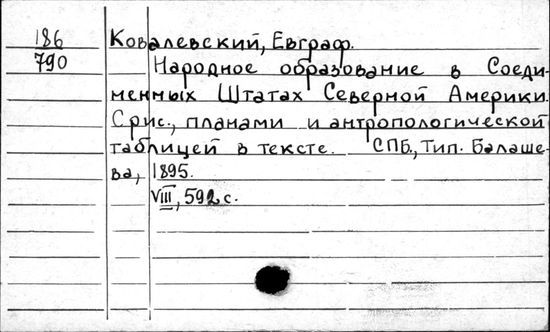 186
790
Ковалевский, Евграф.
Народное образование в Соеди-
ненных Штатах Северной Америки.
С рис., планами и антропологической
таблицей в тексте. СПБ., Тип. Балаше-
ва, 1895.
VIII, 592 с.